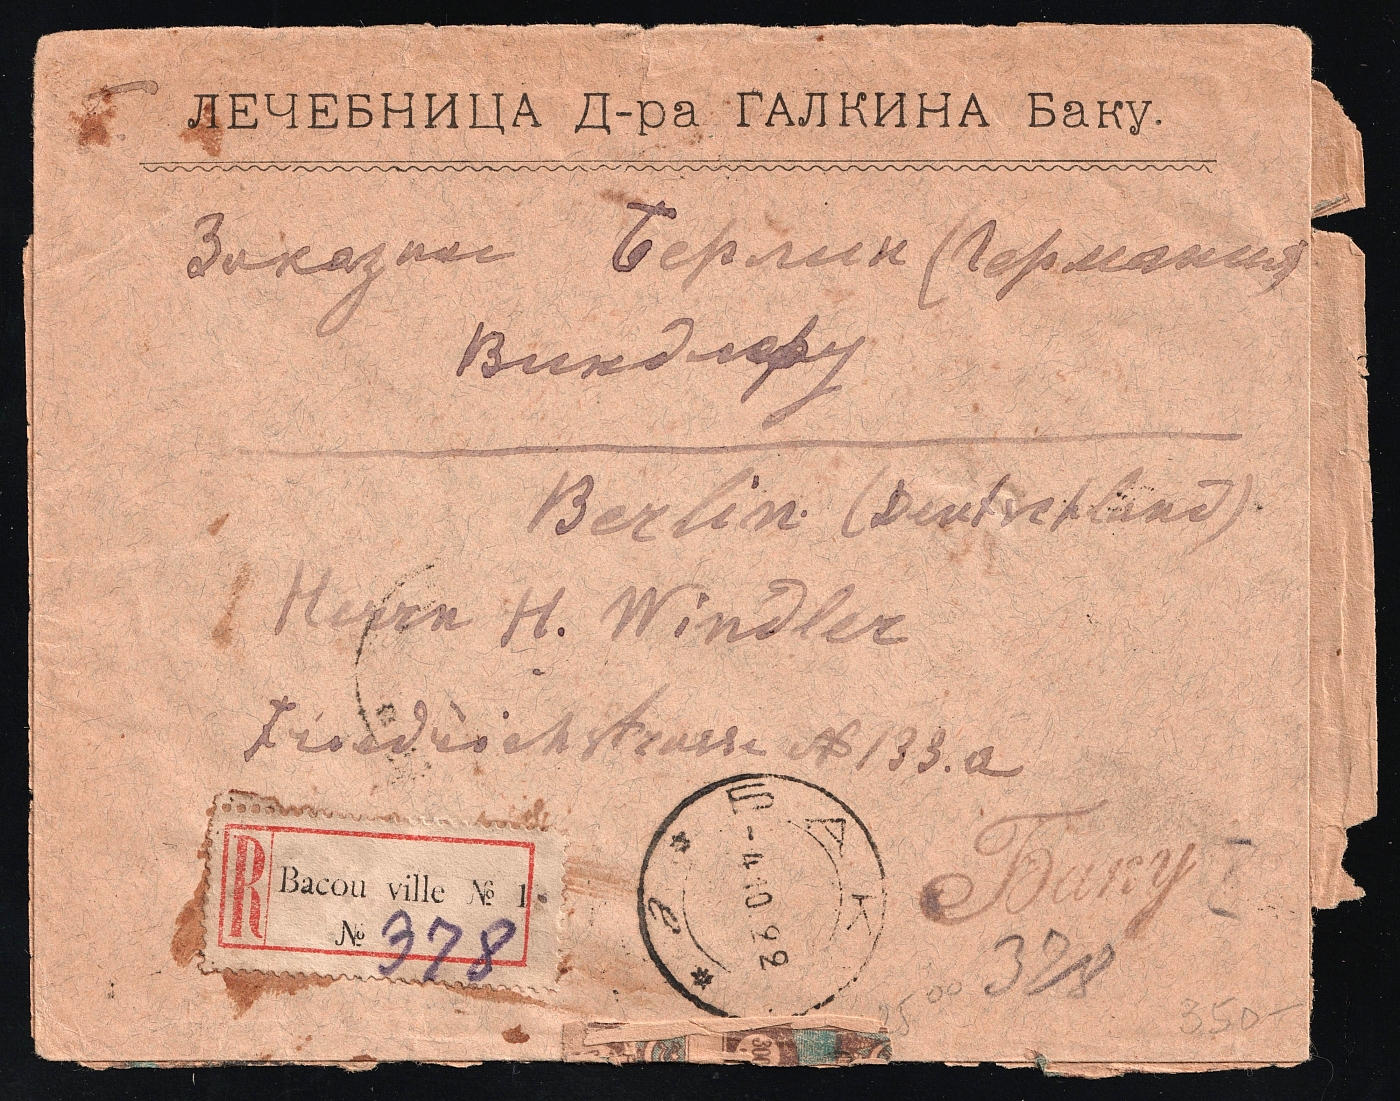 ЛЕЧЕБНИЦА Д-ра ГАЛКИНА Баку.
Заказное Берлин (Германия)
Виндлеру
Berlin (Deutschland)
Herrn H. Windler
Friedrichstrasse № 133.a
R Bacou ville № 1.
№ 378
БАКУ
-4 10 22
Баку
378
25 00
350-
300